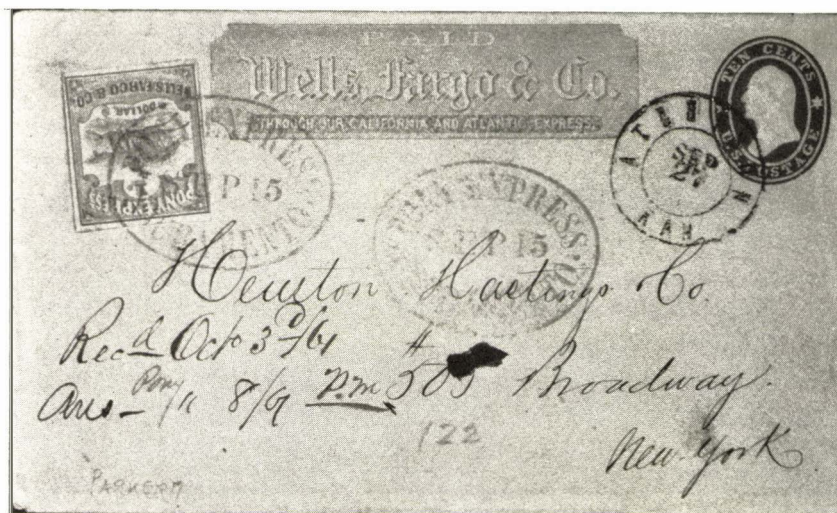 PAID
Wells, Fargo & Co.
THROUGH OUR CALIFORNIA AND ATLANTIC EXPRESS.
TEN CENTS
U.S. POSTAGE
WELLS FARGO & CO.
DOLLAR
PONY EXPRESS
EXPRESS
SEP 15
SACRAMENTO
PONY EXPRESS
SEP 15
SEP
27
KAN
Heuston Hastings Co.
Rec'd Oct 3d/61
Ans Pony 8/61 P.M # 505 Broadway.
122
New York
PARKER